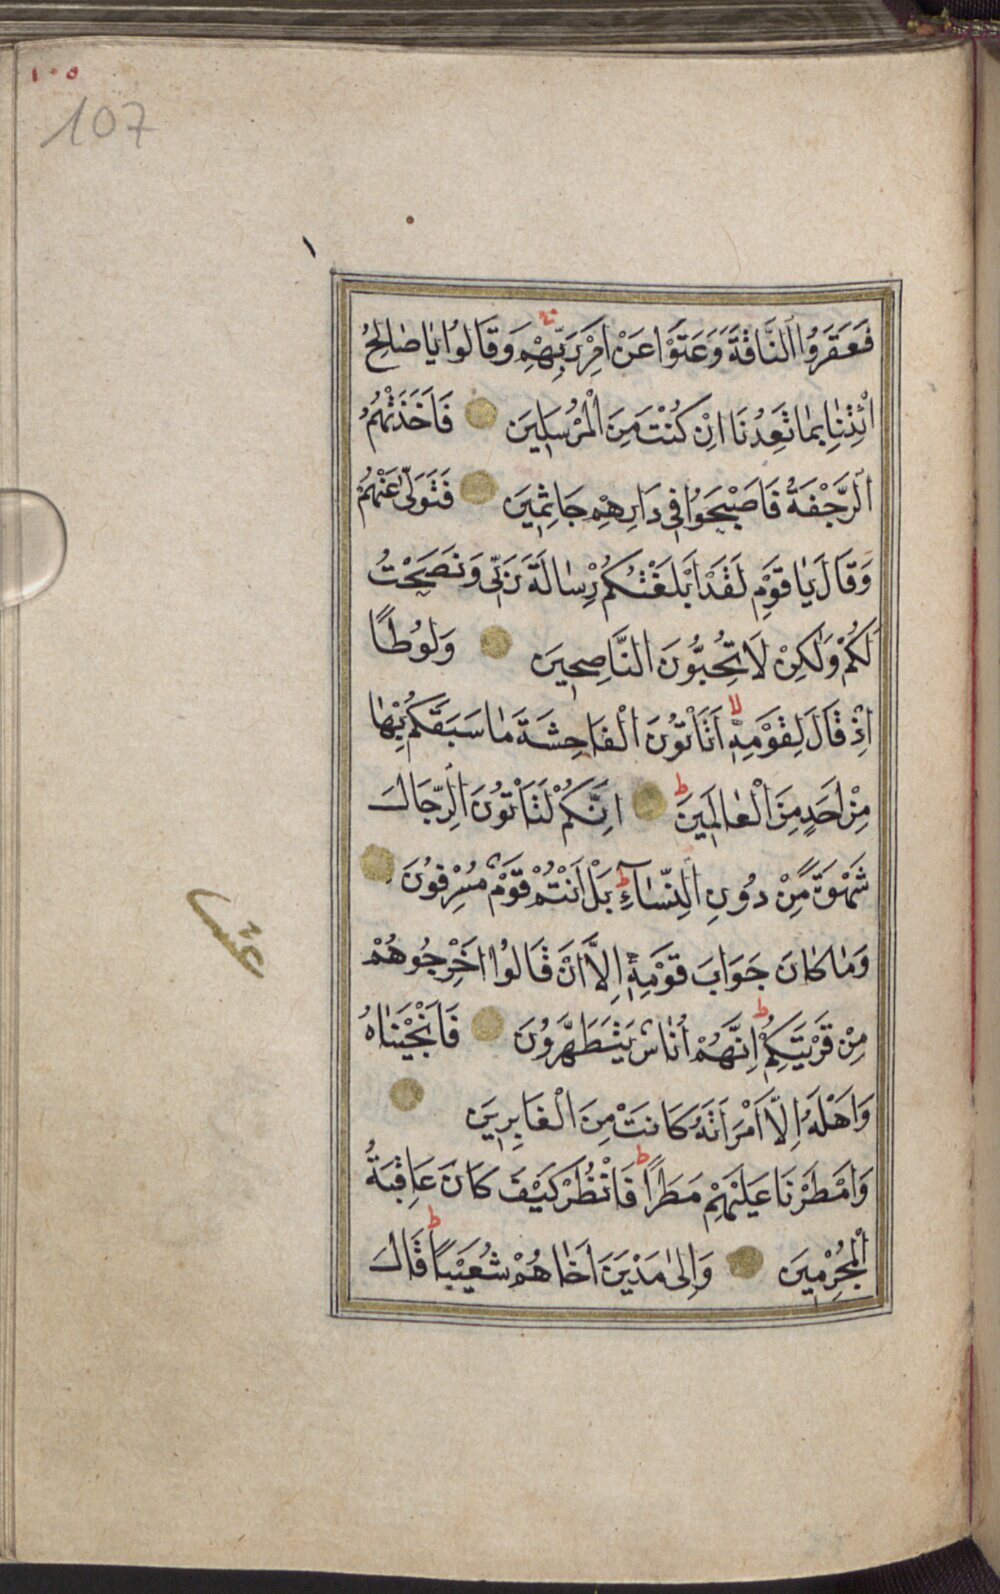 ١٠٥
107
فَعَقَرُوا النَّاقَةَ وَعَتَوْا عَنْ اَمْرِ رَبِّهِمْ وَقَالُوا يَا صَالِحُ
ائْتِنَا بِمَا تَعِدُنَا اِنْ كُنْتَ مِنَ الْمُرْسَلِينَ فَاَخَذَتْهُمُ
الرَّجْفَةُ فَاَصْبَحُوا فِي دَارِهِمْ جَاثِمِينَ فَتَوَلّٰى عَنْهُمْ
وَقَالَ يَا قَوْمِ لَقَدْ اَبْلَغْتُكُمْ رِسَالَةَ رَبِّي وَنَصَحْتُ
لَكُمْ وَلٰكِنْ لَا تُحِبُّونَ النَّاصِحِينَ وَلُوطًا
اِذْ قَالَ لِقَوْمِهِ اَتَاْتُونَ الْفَاحِشَةَ مَا سَبَقَكُمْ بِهَا
مِنْ اَحَدٍ مِنَ الْعَالَمِينَ اِنَّكُمْ لَتَاْتُونَ الرِّجَالَ
شَهْوَةً مِنْ دُونِ النِّسَآءِ بَلْ اَنْتُمْ قَوْمٌ مُسْرِفُونَ
وَمَا كَانَ جَوَابَ قَوْمِهِ اِلَّا اَنْ قَالُوا اَخْرِجُوهُمْ
مِنْ قَرْيَتِكُمْ اِنَّهُمْ اُنَاسٌ يَتَطَهَّرُونَ فَاَنْجَيْنَاهُ
وَاَهْلَهُ اِلَّا امْرَاَتَهُ كَانَتْ مِنَ الْغَابِرِينَ
وَاَمْطَرْنَا عَلَيْهِمْ مَطَرًا فَانْظُرْ كَيْفَ كَانَ عَاقِبَةُ
الْمُجْرِمِينَ وَاِلٰى مَدْيَنَ اَخَاهُمْ شُعَيْبًا قَالَ